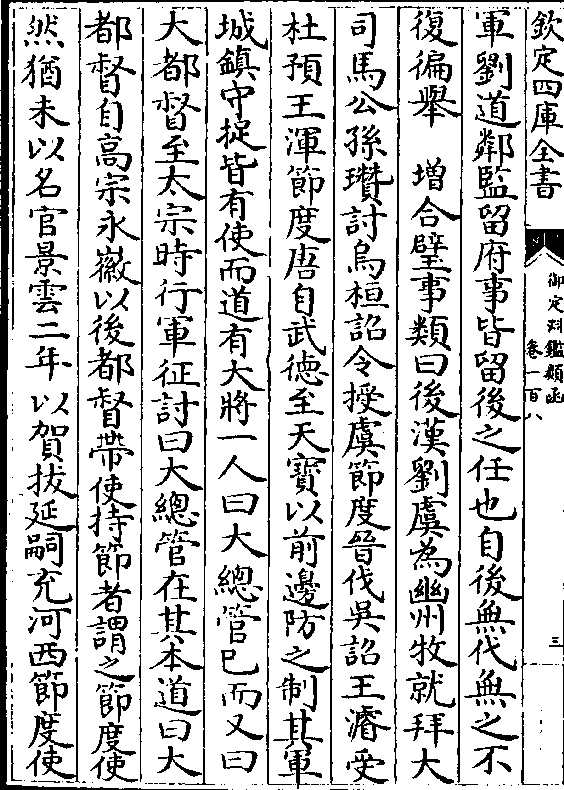 欽定四庫全書
御定淵鑑類函
卷一百八
三
軍劉道鄰監留府事皆留後之任也自後無代無之不
復徧舉　增合璧事類曰後漢劉虞為幽州牧就拜大
司馬公孫瓚討烏桓詔令授虞節度晉伐吳詔王濬受
杜預王渾節度唐自武德至天寶以前邊防之制其軍
城鎮守捉皆有使而道有大將一人曰大總管已而又曰
大都督至太宗時行軍征討曰大總管在其本道曰大
都督自高宗永徽以後都督帶使持節者謂之節度使
然猶未以名官景雲二年以賀拔延嗣充河西節度使